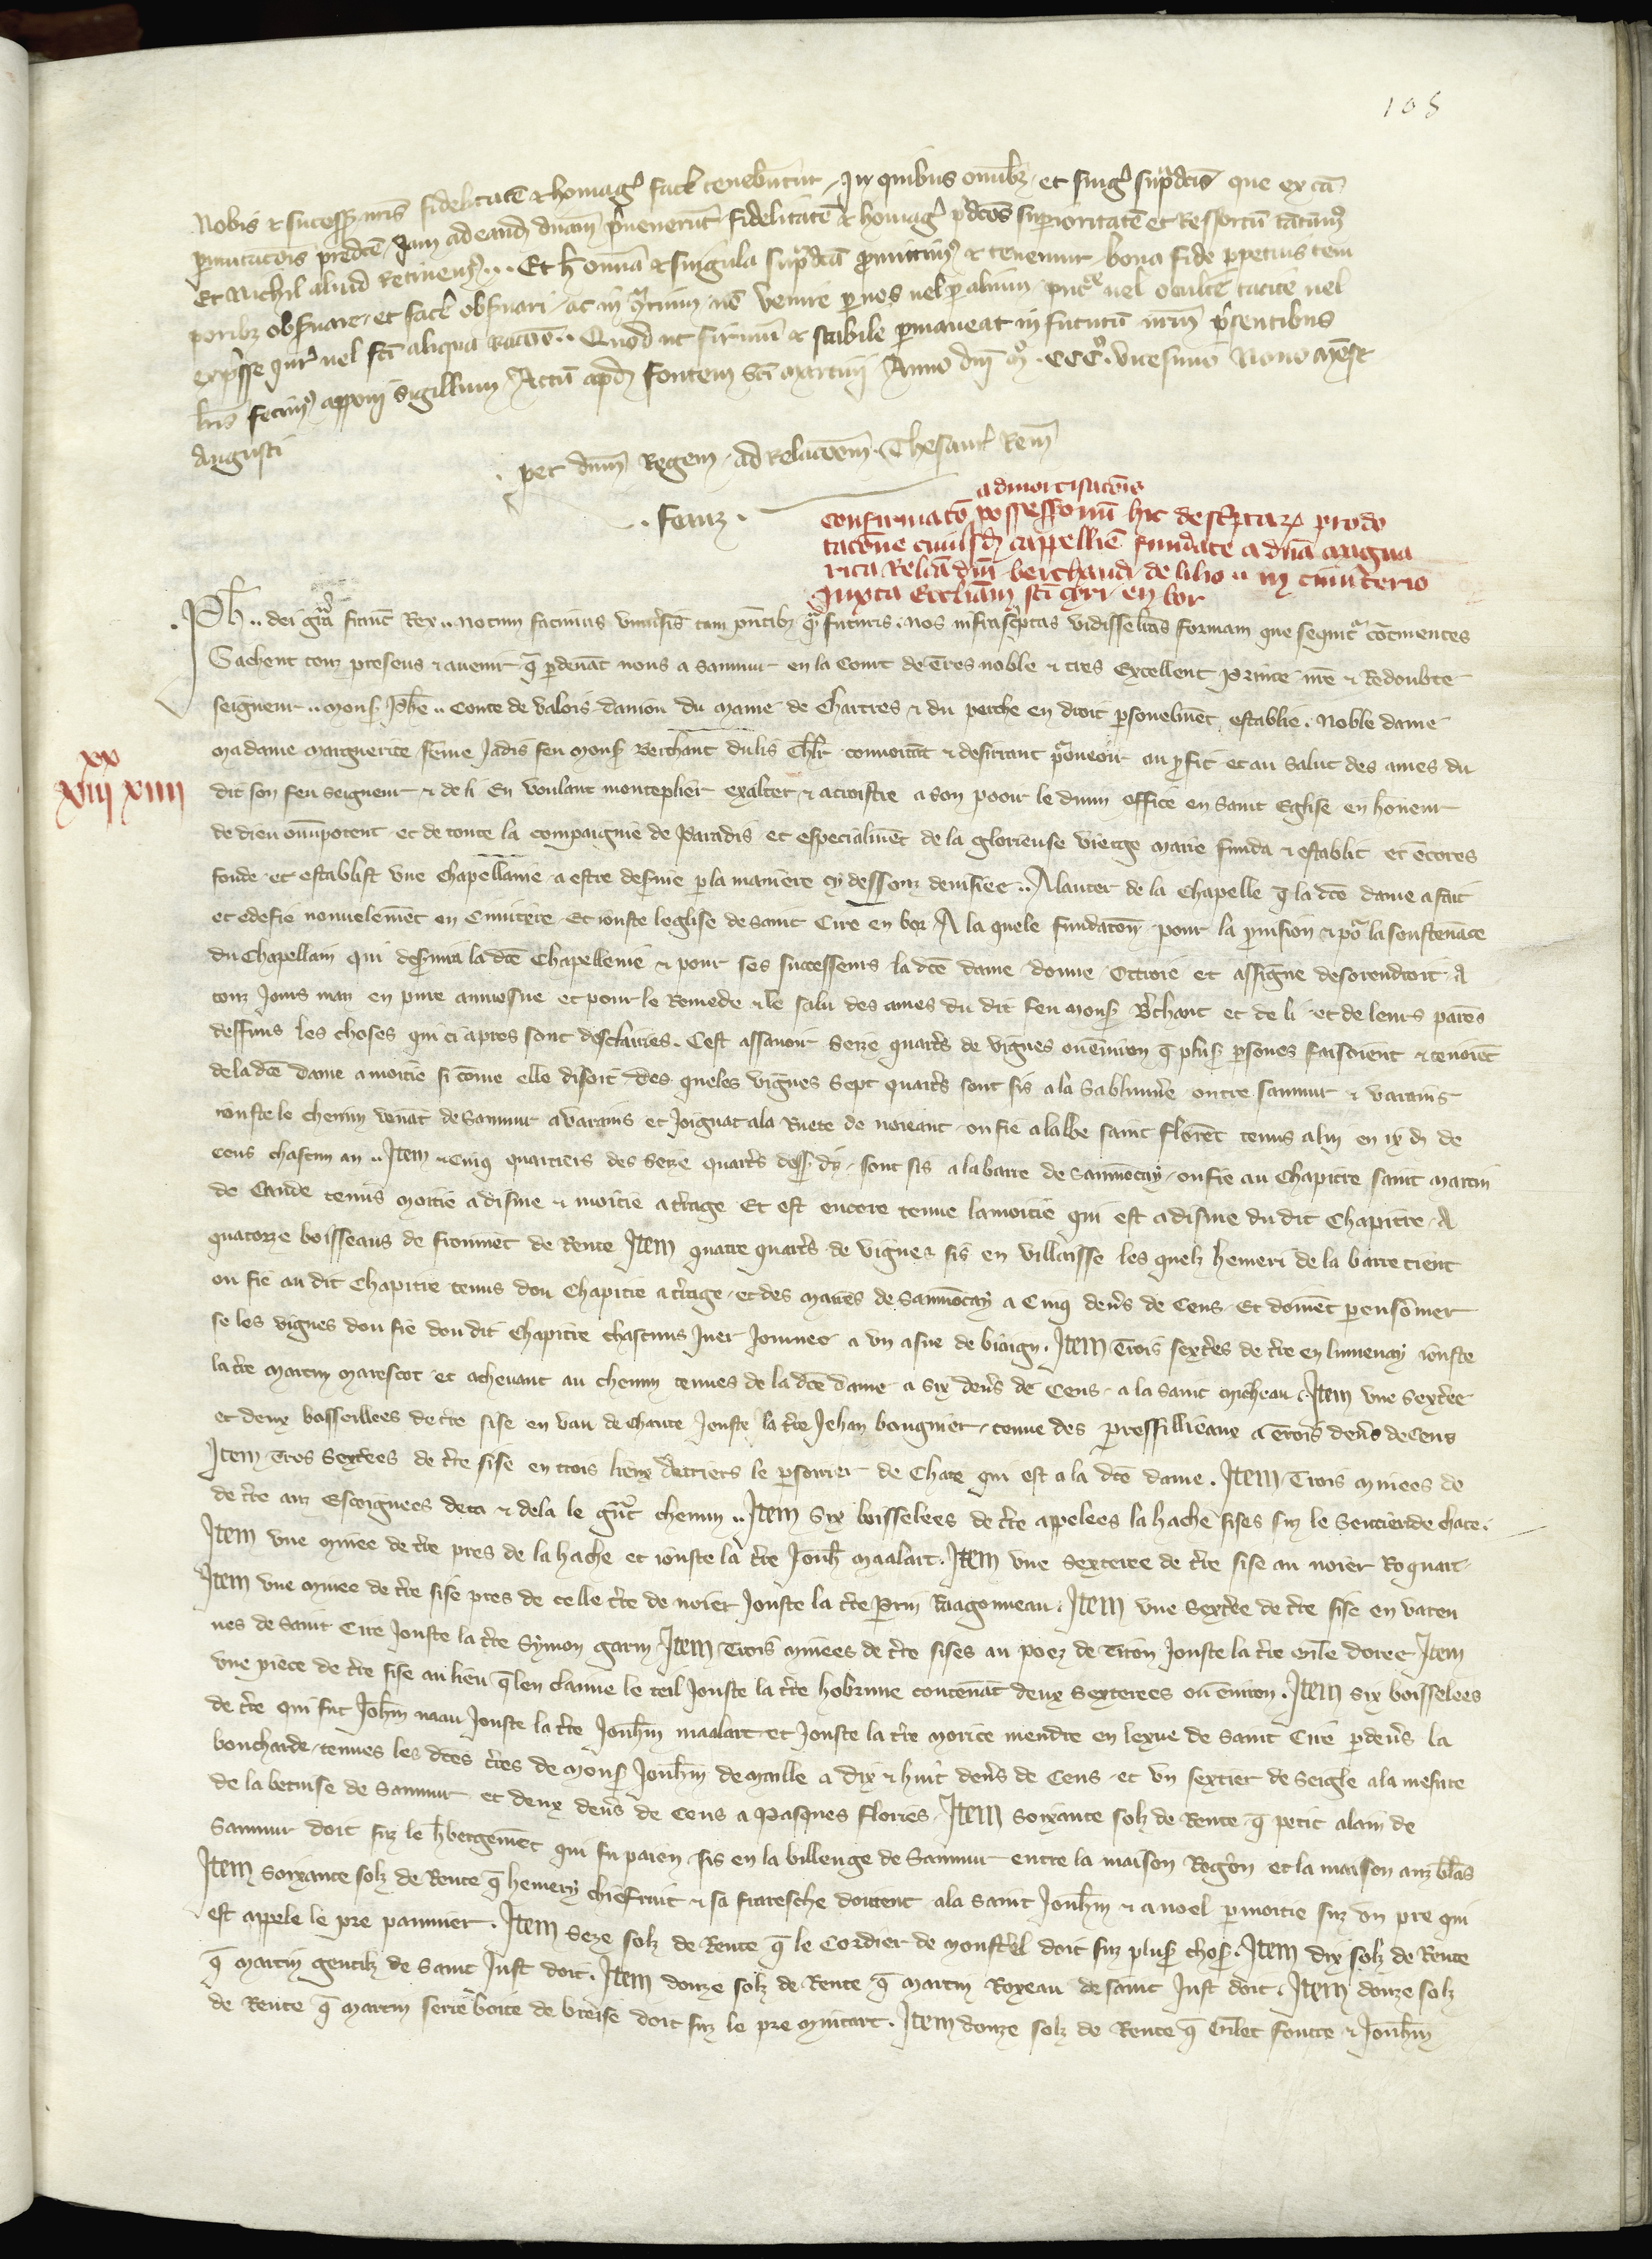 105
Nobis & success nris fidelitatē & homag facē tenebuntur. In quibus omībz et sing sup̄dcis que ex cā
pmutacōis predcē Iam ad eand dnam p̄venerūt fidelitatē & homag p̄dcōs superioritatē et Ressortū tātūm
Et Nichil aliud Retinem̄s. Et h omīa & singula sup̄dcā promittim & tenemur bona fide ppetuis tem
poribz observare et facē observari ac in tium nō venire p nos vel p alium vel occultē tacite vel
exp̄sse vel aliqua racōe. Quod ut firmū & stabile pmaneat in futurū nrm p̄sentibus
lrīs fecim apponi sigillum Actū apd fontem sci martini Anno dni mº. CCCº. vicesimo Nono mēse
Augusti
per dnm Regem ad Relacōem Thesaur Rem
. feauz .
admortisacōis
confirmacō possessionū hic desc̄ptarz pro do
tacōne cuiusd cappelliē fundate a dnā margua
rita Relictā dni berthaud de lilio .. in cimit̄erio
Iuxta Eccliam sci en bor
xx
viij xiiij
Ph .. dei gr̄a francˉ Rex .. notum facimus univ̄sis tam p̄ntibz q̄ futuris. Nos infrasc̄ptas vidisse lrās formam que sequitr cōtinentes
Sachent touz presens & avenir q̄ p devāt nous a Saumur en la Court de t̄res noble & tres Excellent Prince nrē & Redoubte
seigneur .. mons Phē .. Conte de valois danjou du Maine de Chartres & du perche en droit psonelmēt establie. Noble dame
madame marguerite feme Jadis feu mons Berthaut du lis chlr convoitāt & desirant pourveoir au profit et au salut des ames du
dit son feu seigneur & de li En voulant monteplier exalter & acroistre a son pooir le divin office en saint Eglise en honeur
de dieu omīpotent et de toute la compaignie de Paradis et especialmēt de la glorieuse vierge marie funda & establit et ēcores
fonde et establist vne chapellanie a estre deservie p la maniere cy dessouz devisiee .. A lauter de la Chapelle q̄ la dcē dame a fait
et edefie novuelemēt en Cimitere Et iouste leglise de saint Cire en bor A la quele fundacōn pour la pvision & po la soustenāce
du Chapellain qui deservira la dcē Chapellenie & pour ses successeurs la dcē dame donne Ottroie et assigne desorendroit A
touz Jours mais en pure aumosne et pour le Remede & le salu des ames du dit feu mons B̄thaut et de li et de leurs parēs
deffuns les choses qui ci apres sont desclairies. Cest assavoir Seize quart̄s de vignes ou ēviron q̄ plus psones faisoient & tenoiēt
de la dcē dame a moitie si cōme elle disoit des queles vignes Sept quart̄s sont sis a la Sablonn̄re entre saumur & varains
iouste le chemin venāt de Saumur a varains et Joignāt a la Ruete de noieant ou fie a labbe saint flor̄et tenus a lui en ix d de
cens chascun an .. Item Cinq quartiers des Seize quart̄s dess dis sont sis a la barre de Saumōcay ou fie au Chapitre saint martin
de Cande tenus moitie a disme & moitie a t̄rage Et est encore tenue la moitie qui est a disme du dit Chapitre A
quatorze boisseaus de fromēt de Rente Item quatre quart̄s de vignes sis en villaisse les quelz hemeri de la barre tient
ou fie au dit Chapitre tenus dou Chapitre a t̄rage et des maires de Saumōcay a Cinq den̄s de Cens Et doivēt pensōmer
se les vignes dou fie dou dit Chapitre chascuns Jver Journee a vn asne de biaign. Item Trois sext̄es de t̄re en luminay iouste
la t̄re martin marescot et achevant au chemin tenues de la dcē dame a six den̄s de Cens a la saint micheau. Item vne Sext̄ee
et deux boisseillees de t̄re sise en vau de chaute Jouste la t̄re Jehan bougnier tenue des pressillieaux a Trois den̄s de Cens
Item Tros Sext̄ees de t̄re sise en trois lieux Derriers le pressourer de Chace qui est a la dcē dame. Item Trois minees de
de t̄re auz Escoignees deca & dela le gūt chemin .. Item Six boisselees de t̄re appelees la hache sises suz le Sentierde chace.
Item vne minee de t̄re pres de la hache et iouste la t̄re Jouh Maalart. Item vne Sexteree de t̄re sise au noier Roquart.
Item vne minee de t̄re sise pres de celle t̄re de noier Jouste la t̄re Prin Ragonneau. Item vne Sext̄ee de t̄re sise en varen
nes de Saint Cire Jouste la t̄re Symon garin Item Trois minees de t̄re sises au poez de Tiron Jouste la t̄re Guil̄e doree Item
vne piece de t̄re sise au lieu q̄ len claime le teil Jouste la t̄re hobrune contenāt deux Sexterees ou ēviron. Item Six boisselees
de t̄re qui fut Johm naau Jouste la t̄re Jouhm maalart et Jouste la t̄re morice mendre en lexue de saint Cire p den̄s la
boucharde tenues les dcēs t̄res de mons Jouhm de maille a dix & huit den̄s de Cens et vn sextier de Seigle a la mesure
de la becuise de Saumur et deux den̄s de Cens a Pasques flories. Item Soixante solz de Rente q̄ petit alain de
Saumur doit suz le hbergemēt qui fu paien sis en la billenge de Saumur entre la maison Rogon et la maison auz blas
Item Soixante solz de Rente q̄ hemery chiefruit & sa fraresche doivent a la saint Jouhm & a noel p moitie suz vn pre qui
est appele le pre paumier. Item Seze solz de Rente q̄ le Cordier de monst̄el doit suz plus chos. Item dix solz de Rente
q̄ martin gentilz de saint Just doit. Item douze solz de Rente q̄ martin Royeau de saint Just doit. Item douze solz
de Rente q̄ martin serre boite de breise doit suz le pre minart. Item douze solz de Rente q̄ Guilet fouctre & Jouhm